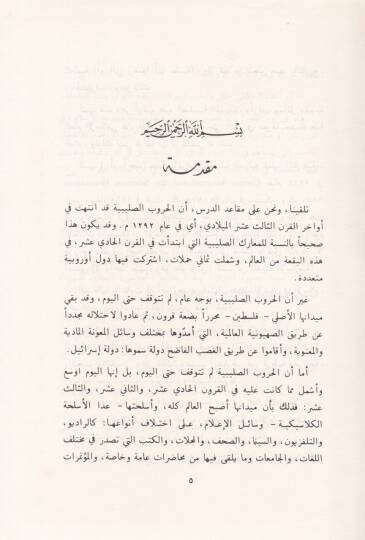 بسم الله الرحمن الرحيم
مقدمة
تلقينا، ونحن على مقاعد الدرس، أن الحروب الصليبية قد انتهت في
أواخر القرن الثالث عشر الميلادي، أي في عام ١٢٩٢ م. وقد يكون هذا
صحيحاً بالنسبة للمعارك الصليبية التي ابتدأت في القرن الحادي عشر، في
هذه البقعة من العالم، وشملت ثماني حملات، اشتركت فيها دول أوروبية
متعددة.
غير أن الحروب الصليبية، بوجه عام، لم تتوقف حتى اليوم، وقد بقي
ميدانها الأصلي - فلسطين - محرراً بضعة قرون، ثم عادوا لاحتلاله مجدداً
عن طريق الصهيونية العالمية، التي أمدّوها بمختلف وسائل المعونة المادية
والمعنوية، وأقاموا عن طريق الغصب الفاضح دولة سموها: دولة إسرائيل.
أما أن الحروب الصليبية لم تتوقف حتى اليوم، بل إنها اليوم اوسع
وأشمل مما كانت عليه في القرون الحادي عشر، والثاني عشر، والثالث
عشر: فذلك بأن ميدانها أصبح العالم كله، وأسلحتها - عدا الأسلحة
الكلاسيكية - وسائل الإعلام، على اختلاف أنواعها: كالراديو،
والتلفزيون، والسينما، والصحف، والمجلات، والكتب التي تصدر في مختلف
اللغات، والجامعات وما يلقى فيها من محاضرات عامة وخاصة، والمؤتمرات
٥